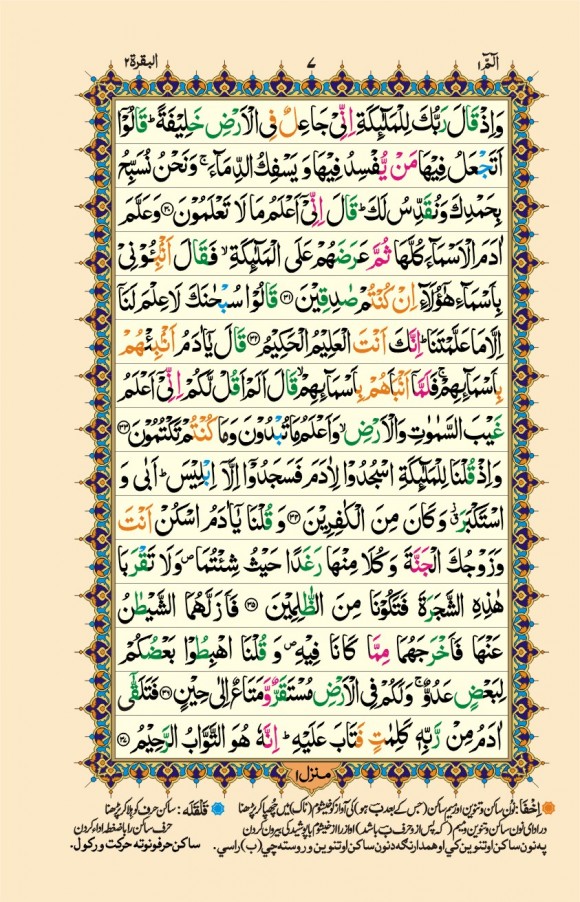 الٓمّٓ ۱ ۷ البقرة ۲
وَاِذۡ قَالَ رَبُّكَ لِلۡمَلٰٓٮِٕكَةِ اِنِّىۡ جَاعِلٌ فِى الۡاَرۡضِ خَلِيۡفَةً ؕ قَالُوۡٓا
اَتَجۡعَلُ فِيۡهَا مَنۡ يُّفۡسِدُ فِيۡهَا وَيَسۡفِكُ الدِّمَآءَ ۚ وَنَحۡنُ نُسَبِّحُ
بِحَمۡدِكَ وَنُقَدِّسُ لَـكَ ؕ قَالَ اِنِّىۡٓ اَعۡلَمُ مَا لَا تَعۡلَمُوۡنَ ۝۳۰ وَعَلَّمَ
اٰدَمَ الۡاَسۡمَآءَ كُلَّهَا ثُمَّ عَرَضَهُمۡ عَلَى الۡمَلٰٓٮِٕكَةِ ۙ فَقَالَ اَنۡۢبِــُٔوۡنِىۡ
بِاَسۡمَآءِ هٰٓؤُلَآءِ اِنۡ كُنۡتُمۡ صٰدِقِيۡنَ ۝۳۱ قَالُوۡا سُبۡحٰنَكَ لَا عِلۡمَ لَنَآ
اِلَّا مَا عَلَّمۡتَنَا ؕ اِنَّكَ اَنۡتَ الۡعَلِيۡمُ الۡحَكِيۡمُ ۝۳۲ قَالَ يٰٓاٰدَمُ اَنۡۢبِئۡهُمۡ
بِاَسۡمَآٮِٕهِمۡ ۚ فَلَمَّآ اَنۡۢبَاَهُمۡ بِاَسۡمَآٮِٕهِمۡ ۙ قَالَ اَلَمۡ اَقُلۡ لَّـكُمۡ اِنِّىۡٓ اَعۡلَمُ
غَيۡبَ السَّمٰوٰتِ وَالۡاَرۡضِ ۙ وَاَعۡلَمُ مَا تُبۡدُوۡنَ وَمَا كُنۡتُمۡ تَكۡتُمُوۡنَ ۝۳۳
وَاِذۡ قُلۡنَا لِلۡمَلٰٓٮِٕكَةِ اسۡجُدُوۡا لِاٰدَمَ فَسَجَدُوۡٓا اِلَّآ اِبۡلِيۡسَ ؕ اَبٰى وَ
اسۡتَكۡبَرَ ٭ۗ وَكَانَ مِنَ الۡكٰفِرِيۡنَ ۝۳۴ وَقُلۡنَا يٰٓاٰدَمُ اسۡكُنۡ اَنۡتَ
وَزَوۡجُكَ الۡجَـنَّةَ وَكُلَا مِنۡهَا رَغَدًا حَيۡثُ شِئۡتُمَا ۖ وَلَا تَقۡرَبَا
هٰذِهِ الشَّجَرَةَ فَتَكُوۡنَا مِنَ الظّٰلِمِيۡنَ ۝۳۵ فَاَزَلَّهُمَا الشَّيۡطٰنُ
عَنۡهَا فَاَخۡرَجَهُمَا مِمَّا كَانَا فِيۡهِ ۖ وَقُلۡنَا اهۡبِطُوۡا بَعۡضُكُمۡ
لِبَعۡضٍ عَدُوٌّ ۚ وَلَـكُمۡ فِى الۡاَرۡضِ مُسۡتَقَرٌّ وَّمَتَاعٌ اِلٰى حِيۡنٍ ۝۳۶ فَتَلَقّٰٓى
اٰدَمُ مِنۡ رَّبِّهٖ كَلِمٰتٍ فَتَابَ عَلَيۡهِ ؕ اِنَّهٗ هُوَ التَّوَّابُ الرَّحِيۡمُ ۝۳۷
منزل ۱
اِخْفَا: نون ساکن و تنوین اور میم ساکن (جس کے بعد ب ہو) کی آواز کو خیشوم (ناک) میں چھپا کر پڑھنا قَلْقَلَه: ساکن حرف کو ہلا کر پڑھنا
در ادای نون ساکن و تنوین و میم (که پس از و حرف ب باشد) آواز را از خیشوم با پوشید گی بیرون کردن حرف ساکن را با ضغطه اداه کردن
په نون ساکن او تنوین کي او همدارنگه د نون ساکن او تنوین وروسته چي (ب) راسي. ساکن حرفونو ته حرکت ورکول.